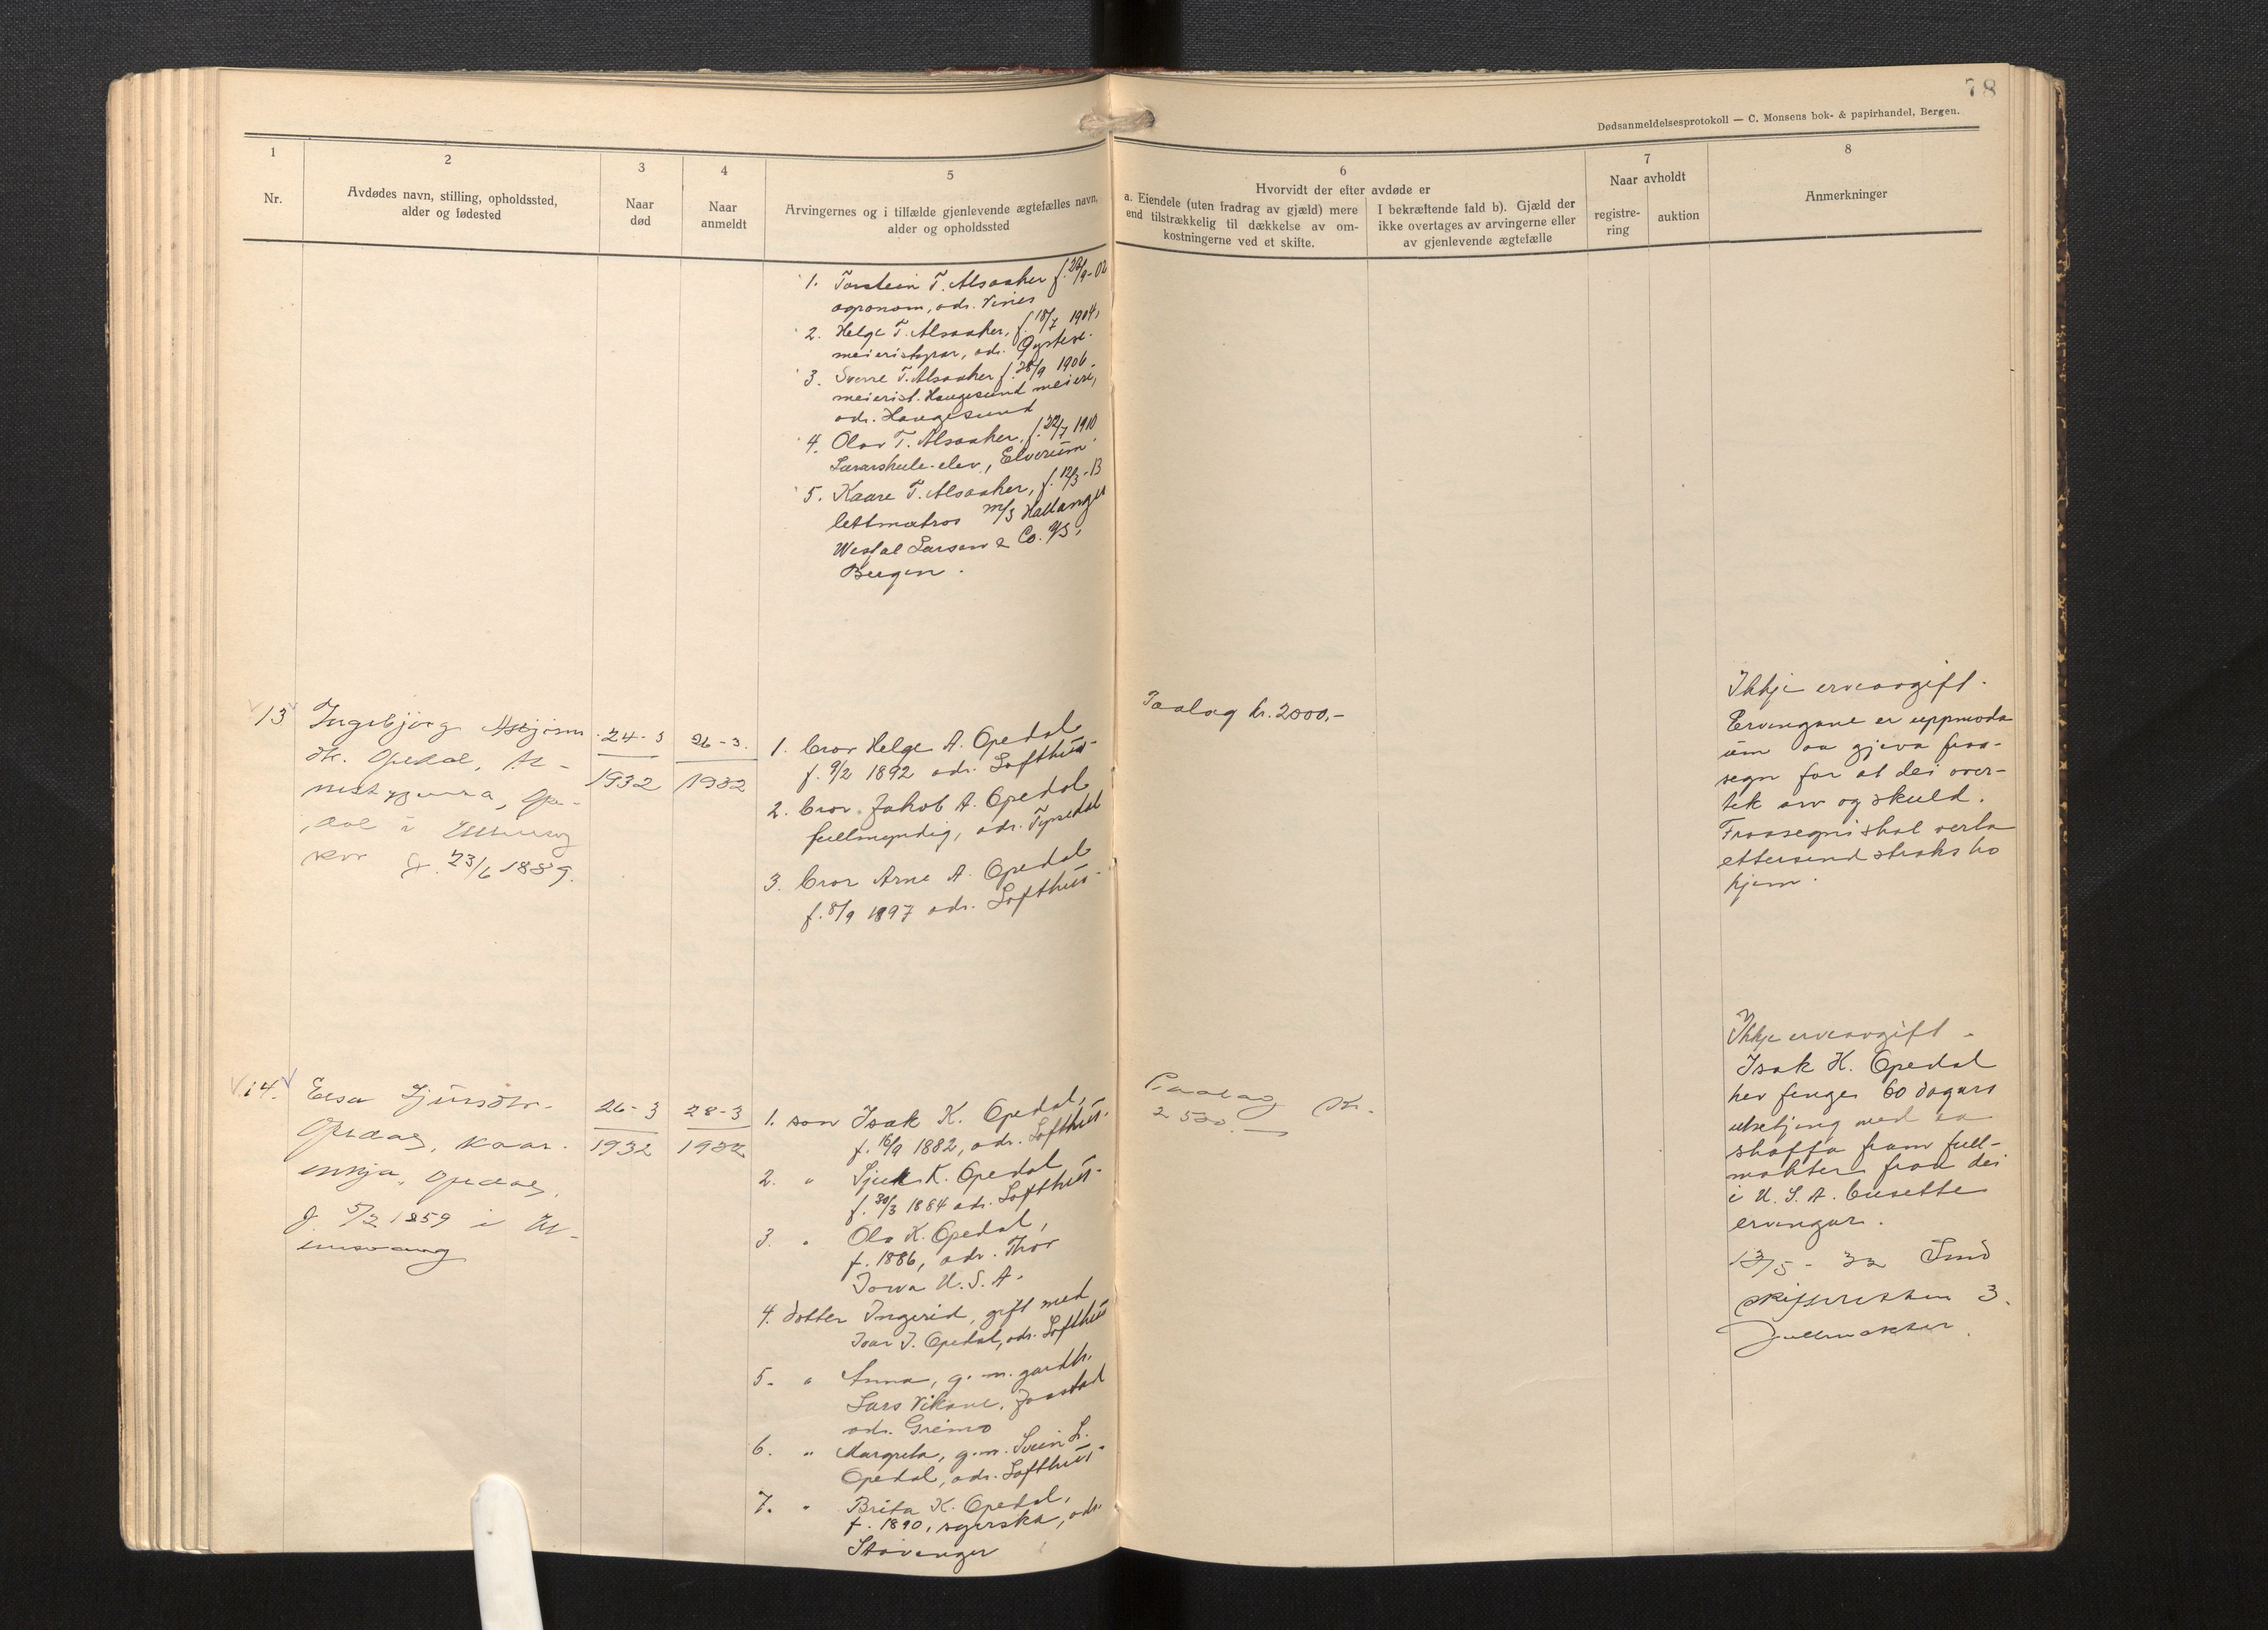 78
Dødsanmeldelsesprotokoll — C. Monsens bok- & papirhandel, Bergen.
1
Nr.
2
Avdødes navn, stilling, opholdssted,
alder og fødested
3
Naar
død
4
Naar
anmeldt
5
Arvingernes og i tilfælde gjenlevende ægtefælles navn,
alder og opholdssted
6
Hvorvidt der efter avdøde er
a. Eiendele (uten fradrag av gjæld) mere
end tilstrækkelig til dækkelse av om-
kostningerne ved et skifte.
I bekræftende fald b). Gjæld der
ikke overtages av arvingerne eller
av gjenlevende ægtefælle
7
Naar avholdt
registre-
ring
auktion
8
Anmerkninger
1. Torstein T. Alsaaker f. 28/9-02
agronom, adr. Vines
2. Helge T. Alsaaker, f. 18/7 1904,
meieristyrar, adr. Øystese.
3. Sverre T. Alsaaker f. 28/9 1906.
meierist. Haugesund meieri,
adr. Haugesund
4. Olav T. Alsaaker, f. 22/7 1910
Lærarskule-elev, Elverum
5. Kaare T. Alsaaker, f. 12/3-13
lettmatros M/S Hallanger
Westfal Larsen & Co. A/S,
Bergen.
13
Ingebjørg Asbjørns
dtr. Opedal,
Ope-
dal i Ullensvang
f. 23/6 1889.
24-3
1932
26-3.
1932
1. bror Helge A. Opedal
f. 9/2 1892 adr. Lofthus-
2. bror Jakob A. Opedal
fullmyndig, adr. Tyssedal
3. bror Arne A. Opedal
f. 8/9 1897 adr. Lofthus-
Paalag kr. 2000,-
Ikkje erveavgift.
Ervingane er uppmoda
um aa gjeva fraa-
segn for at dei over-
tek arv og skuld.
Fraasegni skal verta
ettersend straks ho
kjem.
14.
Elsa Sjursdtr.
Opedal, kaar-
enkja, Opedal,
f. 5/2 1859 i Ul-
lensvang
26-3
1932
28-3
1932
1. son Isak K. Opedal,
f. 16/9 1882, adr. Lofthus.
2. " Sjur K. Opedal
f. 30/3 1884 adr. Lofthus.
3. " Ola K. Opedal,
f. 1886, adr. Thor
Iowa U.S.A.
4. dotter Ingerid, gift med
Ivar J. Opedal, adr. Lofthus
5. " Anna, g.m. gardbr.
Lars Vikane, Jaastad
adr. Grimo
6. " Margreta, g.m. Svein L.
Opedal, adr. Lofthus.
7. " Brita K. Opedal,
f. 1890, syerska, adr.
Stavanger
Paalag kr.
2500.—
Ikkje erveavgift.
Isak K. Opedal
hev fenge 60 dagars
utsetjing med aa
skaffa fram full-
makter fraa dei
i U.S.A. busette
ervingar.
13/5-32 Send
skifteretten 3.
fullmakter.